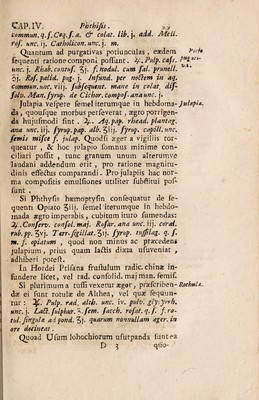 CAP. IV. Phthisis. 29
commun. q. s. Coq. s. a. & colat. lib. j. add. Mell.
ros. unc. ij. Catholicon. unc. j. m.
Quantum ad purgativas potiunculas, eædem
sequenti ratione componi possunt. ♃. Pulp. cass.
unc. j. Rhab. confos. ʒj. f. nodul. cum sal. prunell.
ʒj. Ros. pallid. pug. j. Infund. per noctem in aq.
commun. unc. viij. subsequent. mane in colat. dis-
solv. Man. syrup. de Cichor. compos. ana unc. j.
Julapia vespere semel iterumque in hebdoma-
da, quousque morbus perseverat, exporrigen-
da hujusmodi sint. ♃. Aq. pap. rhead. plantag.
ana unc. iij. syrup. pap. alb. ʒiij. syrup. capill. unc.
semis misce f. julap. Quodsi æger a vigiliis tor-
queatur, & hoc julapio somnus minime con-
ciliari possit, tunc granum unum alterumve
laudani addendum erit, pro ratione magnitu-
dinis effectus comparandi. Pro julapiis hæc nor-
ma compositis emulsiones utiliter substitui pos-
sunt.
Si Phthysis hæmoptysin consequatur de se-
quenti Opiato ʒiij. semel iterumque in hebdo-
mada ægro imperabis, cubitum ituro sumendas:
♃. Conserv. consol. maj. Rosar. ana unc. iij. coral.
rub. pp. ʒvj. Terr. sigillat. ʒij. syrup. tussilag. q. s.
m. f. opiatum, quod non minus ac præcedens
julapium, prius quam lactis diæta usuveniat,
adhiberi potest.
In Hordei Ptisana frustulum radic. chinæ in-
fundere licet, vel rad. consolid. maj. man. semis.
Si plurimum a tussi vexetur æger, præscriben-
dæ ei sunt rotulæ de Althea, vel quæ sequun-
tur: ♃. Pulp. rad. alth. unc. iv. pulv. glycyrrh.
unc. j. Lact. sulphur. ʒ. sem. sacch. rosat. q. s. f. ro-
tul. singulæ ad pond. ʒj. quarum nonnullam æger. in
ore detineat.
Quoad Usum lohochiorum usurpanda sunt ea
D 3 quo-
Julapia.
Rothula.